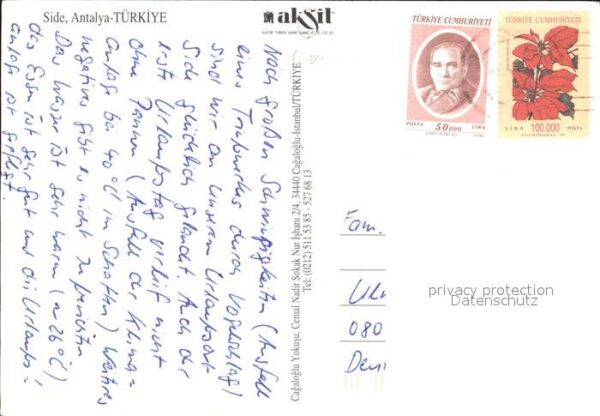 Side, Antalya-TÜRKİYE
akşit
Nach großen Schwierigkeiten (Ausfall
eines Triebwerkes durch Vogelschlag)
sind wir an unserem Urlaubsort
Side glücklich gelandet. Auch der
erste Urlaubstag verlief nicht
ohne Pannen (Ausfall der Klima=
anlage bei 40°C im Schatten) Weiteres
negatives gibt es nicht zu berichten
Das Wasser ist sehr warm (≈ 26°C)
das Essen ist sehr gut und die Urlaubs=
anlage ist gepflegt.
Cağaloğlu Yokuşu, Cemal Nadir Sokak Nur İşhanı 2/4, 34440 Cağaloğlu-İstanbul/TÜRKİYE
Tel: (0212) 511 53 85 - 527 68 13
TÜRKİYE CUMHURİYETİ
POSTA 50000 LİRA
TÜRKİYE CUMHURİYETİ
LİRA 100.000 POSTA
Fam.
080
privacy protection
Datenschutz